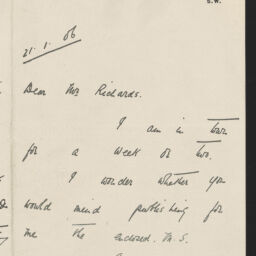 S.W.
21. 1. 06
Dear Mr. Richards.
I am in town
for a week or two.
I wonder whether you
would mind publishing for
me the enclosed M.S.